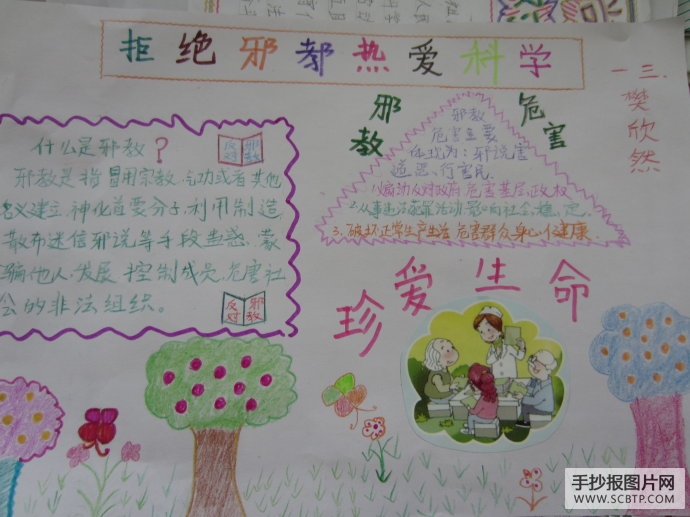 拒绝邪教热爱科学
一三.
樊欣然
什么是邪教?
反对邪教
邪教是指冒用宗教、气功或者其他
名义建立、神化首要分子,利用制造
散布迷信邪说等手段蛊惑、蒙
骗他人,发展、控制成员,危害社
会的非法组织。
反对邪教
邪教
危害
邪教
危害主要
体现为:邪说害
道恶、行害民.
1.煽动反对政府危害基层政权
2.从事违法犯罪活动,影响社会稳定.
3.破坏正常生产生活危害群众身心健康.
珍爱生命
手抄报图片网
WWW.SCBTP.COM